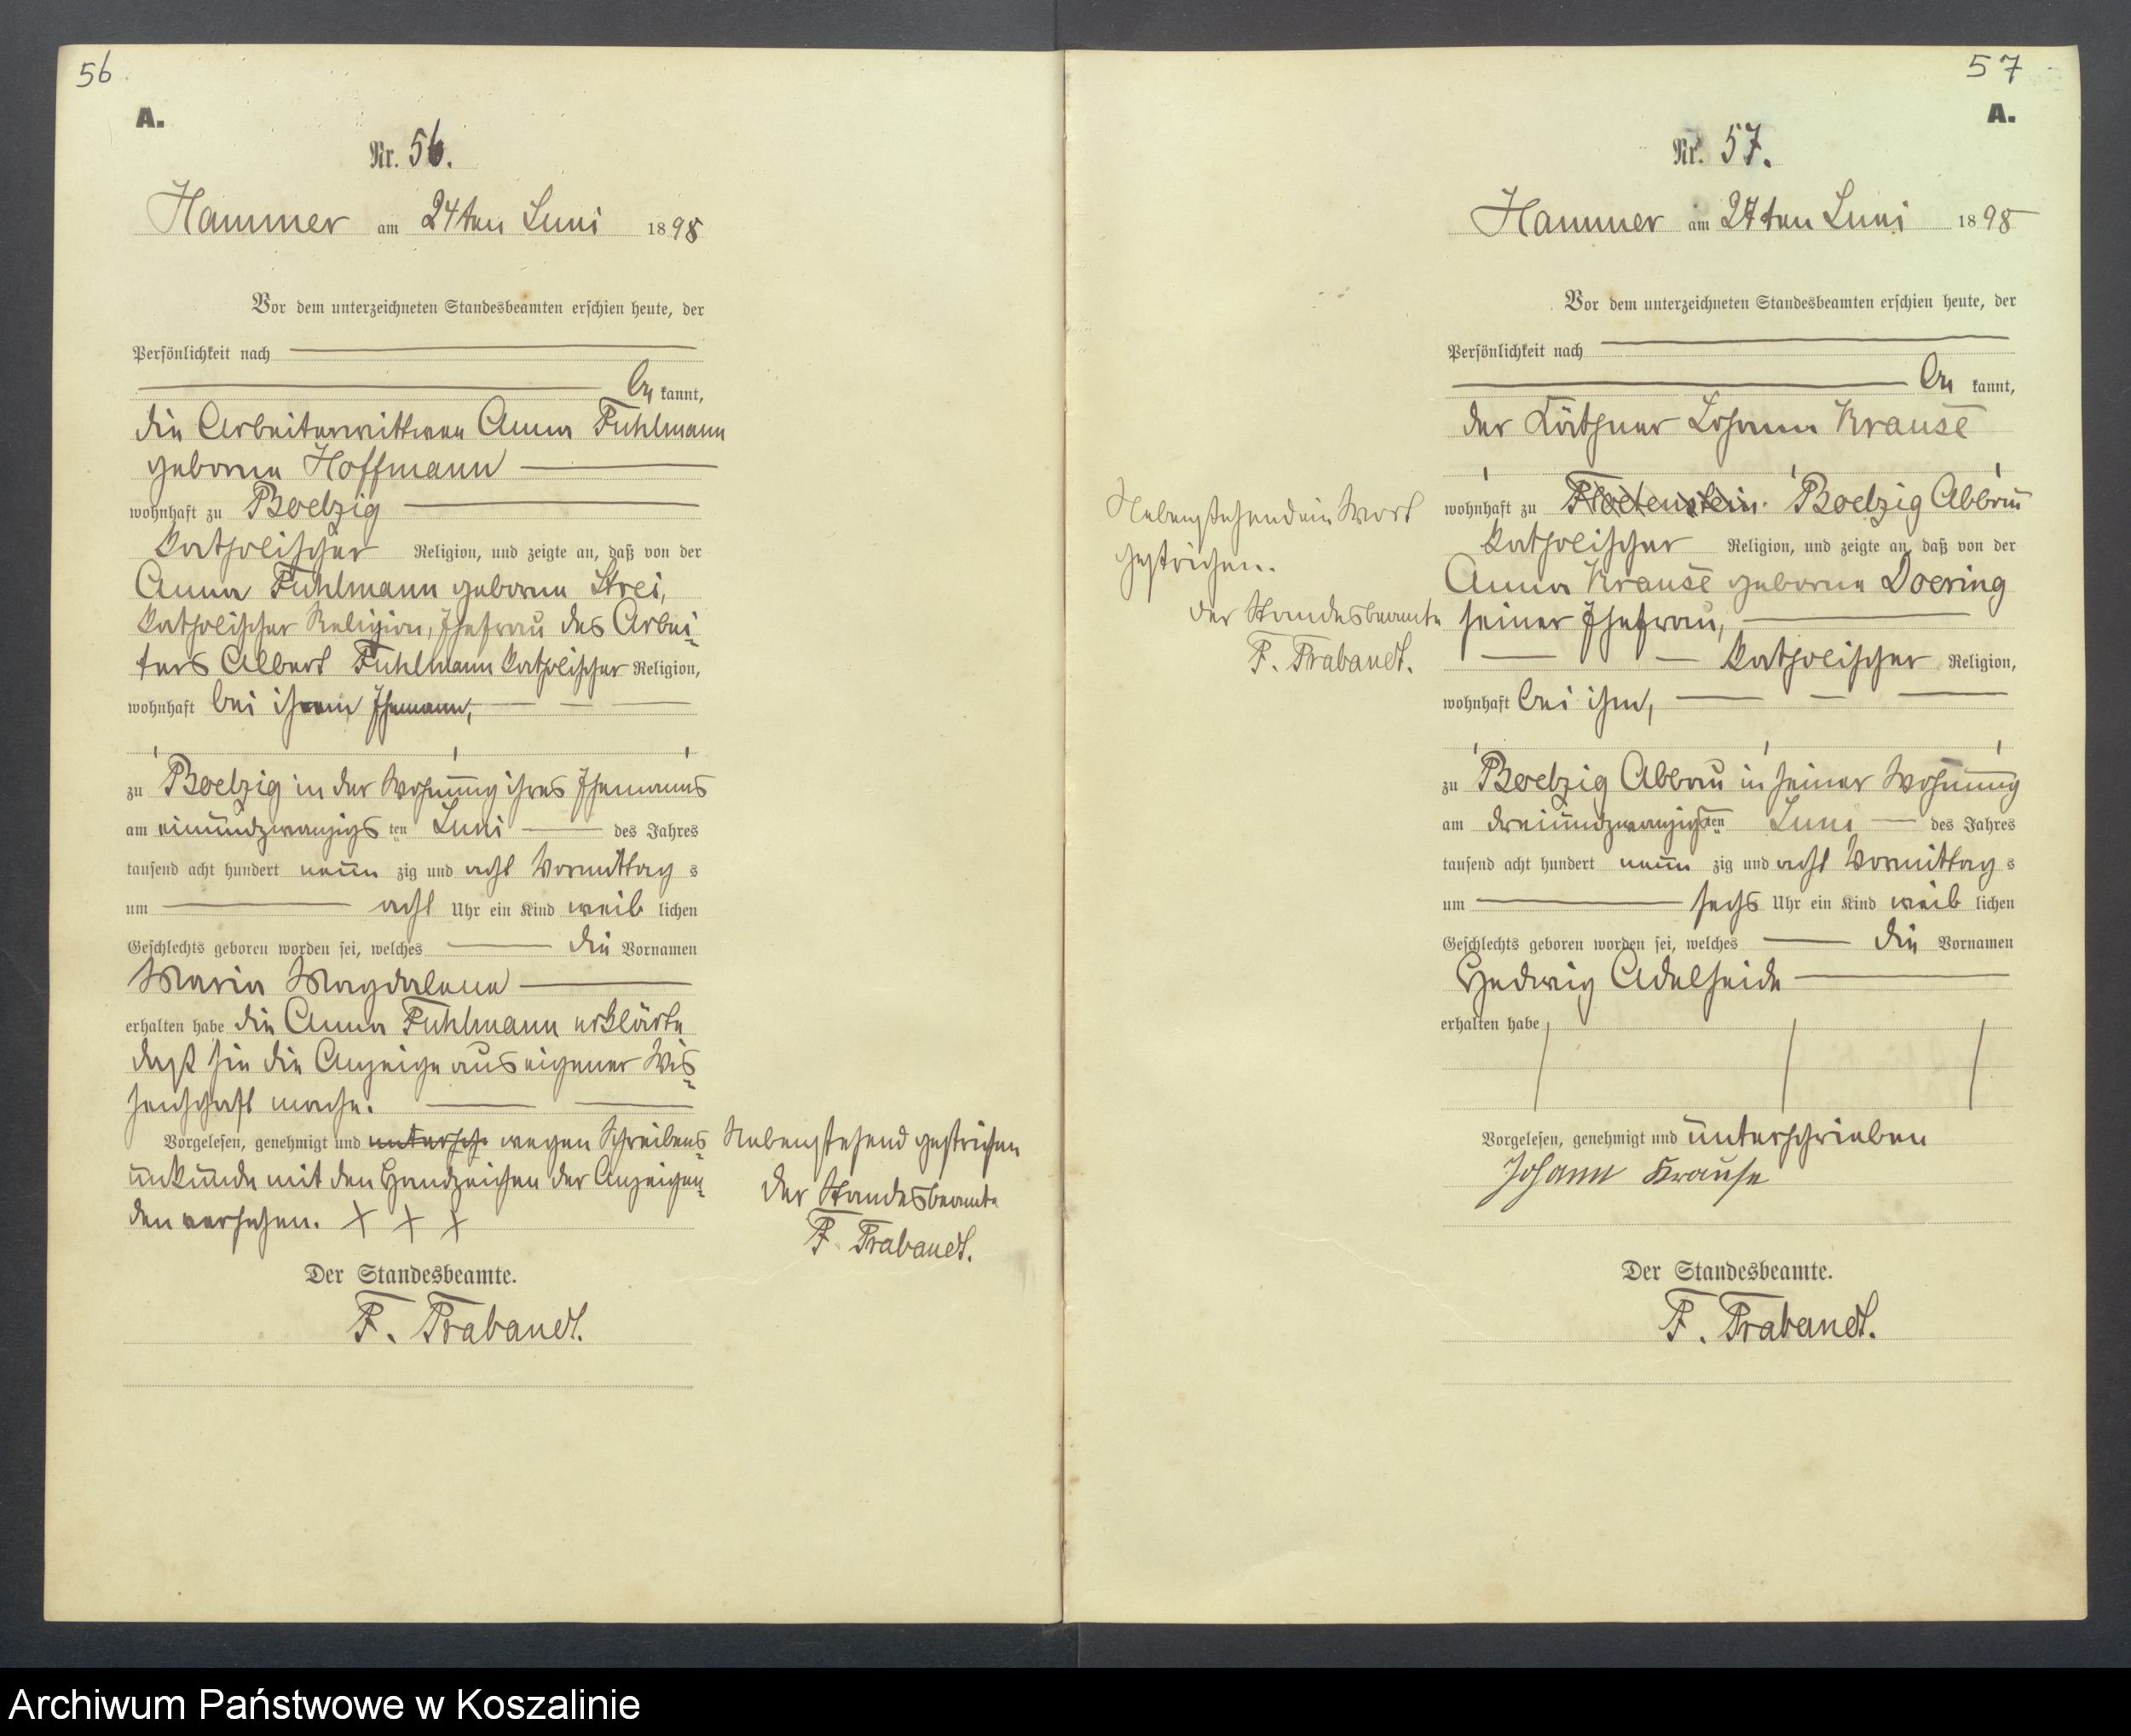 56
A.
Nr. 56.
Hammer am 24ten Juni 1898
Vor dem unterzeichneten Standesbeamten erschien heute, der
Persönlichkeit nach
be kannt,
die Arbeiterwittwee Anna Fuhlmann
geborne Hoffmann
wohnhaft zu Boelzig
katholischer Religion, und zeigte an, daß von der
Anna Fuhlmann geborne Strei,
katholischer Religion, Ehefrau des Arbei-
ters Albert Fuhlmann katholischer Religion,
wohnhaft bei ihrem Ehemann,
zu Boelzig in der Wohnung ihres Ehemanns
am einundzwanzigs ten Juni des Jahres
tausend acht hundert neun zig und acht Vormittag s
um acht Uhr ein Kind weib lichen
Geschlechts geboren worden sei, welches die Vornamen
Maria Magdalena
erhalten habe die Anna Fuhlmann erklärte
daß sie die Anzeige aus eigener Wis-
senschaft mache.
Vorgelesen, genehmigt und untersch. wegen Schreibens-
unkunde mit den Handzeichen der Anzeigen-
den versehen. X X X
Nebenstehend gestrichen
Der Standesbeamte
F. Trabandt.
Der Standesbeamte.
F. Trabandt.
57
A.
Nr. 57.
Hammer am 27ten Juni 1898
Vor dem unterzeichneten Standesbeamten erschien heute, der
Persönlichkeit nach
be kannt,
der Käthner Johann Krause
wohnhaft zu Floetenstein. Boelzig Abbau
katholischer Religion, und zeigte an, daß von der
Anna Krause geborne Doering
seiner Ehefrau,
katholischer Religion,
wohnhaft bei ihm,
Nebenstehend ein Wort
gestrichen.
Der Standesbeamte
F. Trabandt.
zu Boelzig Abbau in seiner Wohnung
am dreiundzwanzigs ten Juni des Jahres
tausend acht hundert neun zig und acht Vormittag s
um sechs Uhr ein Kind weib lichen
Geschlechts geboren worden sei, welches die Vornamen
Hedwig Adelheide
erhalten habe
Vorgelesen, genehmigt und unterschrieben
Johann Krause
Der Standesbeamte.
F. Trabandt.
Archiwum Państwowe w Koszalinie